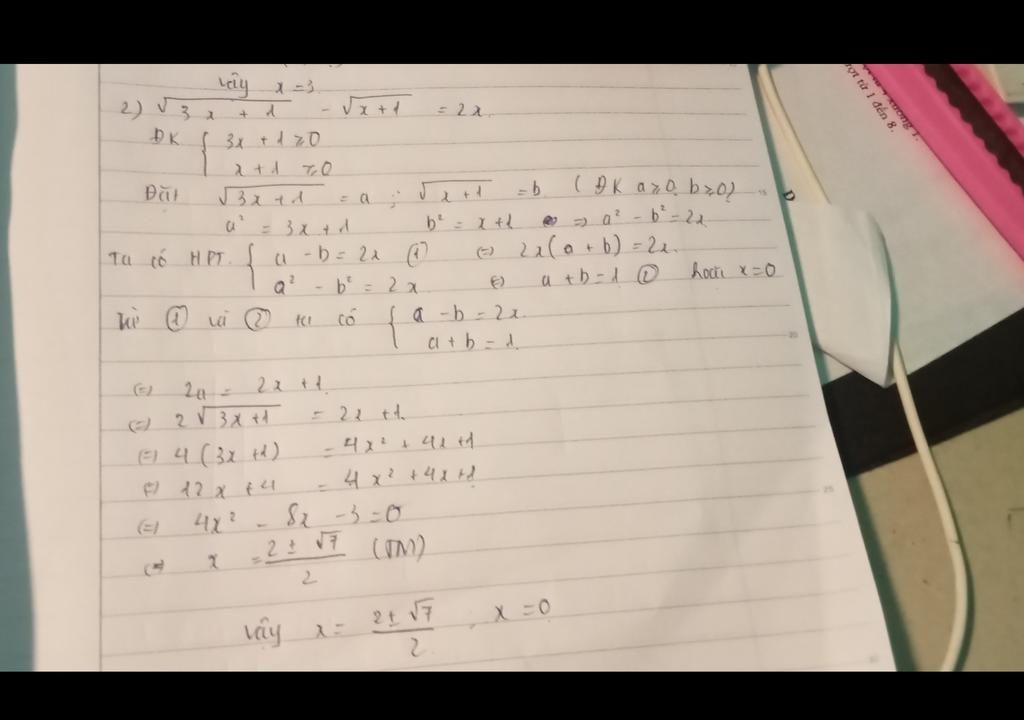 Vậy x = 3
2) √(3x + 1) - √(x + 1) = 2x.
ĐK { 3x + 1 ≥ 0
x + 1 ≥ 0
Đặt √(3x + 1) = a ; √(x + 1) = b ( ĐK a ≥ 0, b ≥ 0)
a² = 3x + 1 b² = x + 1 => a² - b² = 2x
Ta có HPT. { a - b = 2x ① (=) 2x(a + b) = 2x.
a² - b² = 2x (=) a + b = 1 ② hoặc x = 0
Từ ① và ② ta có { a - b = 2x.
a + b = 1.
(=) 2a = 2x + 1
(=) 2√(3x + 1) = 2x + 1.
(=) 4 (3x + 1) = 4x² + 4x + 1
(=) 12x + 4 = 4x² + 4x + 1
(=) 4x² - 8x - 3 = 0
(=) x = (2 ± √7)/2 (TM)
Vậy x = (2 ± √7)/2, x = 0
ợt từ 1 đến 8.
xương 1.
25